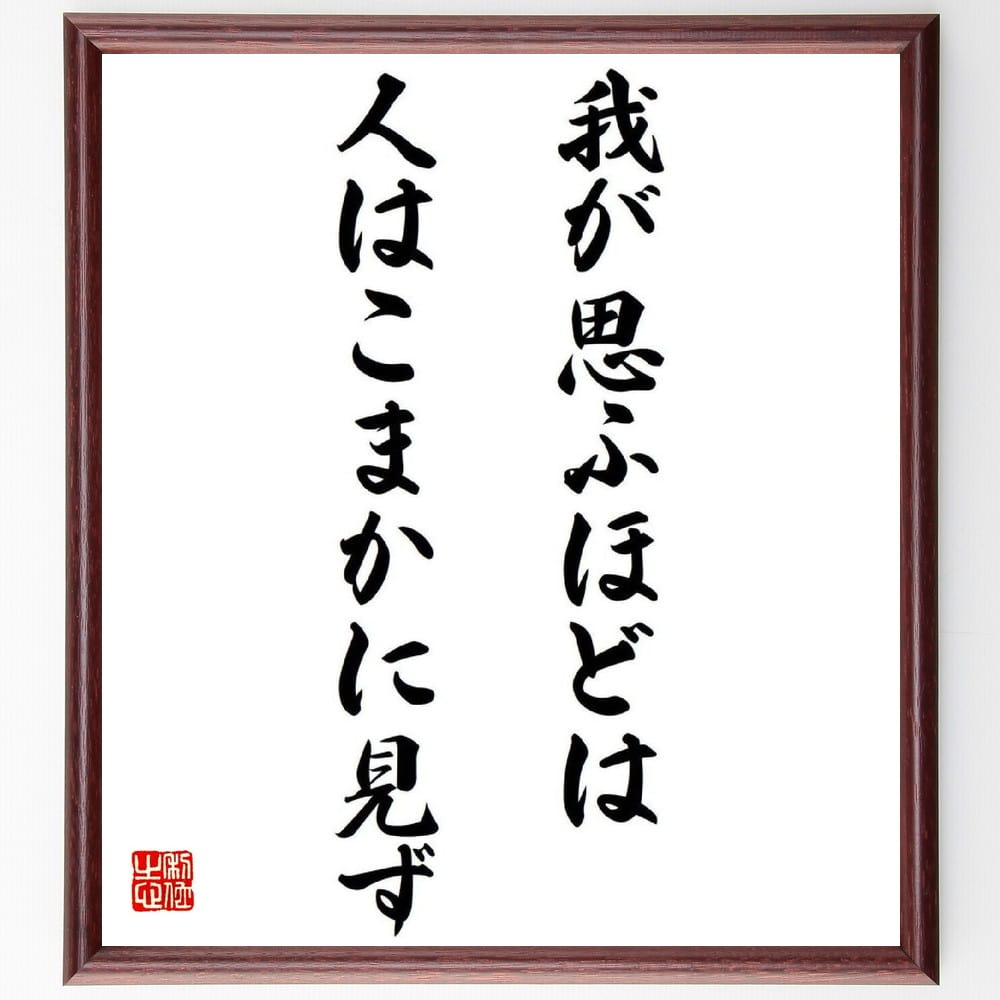 我が思ふほどは
人はこまかに見ず